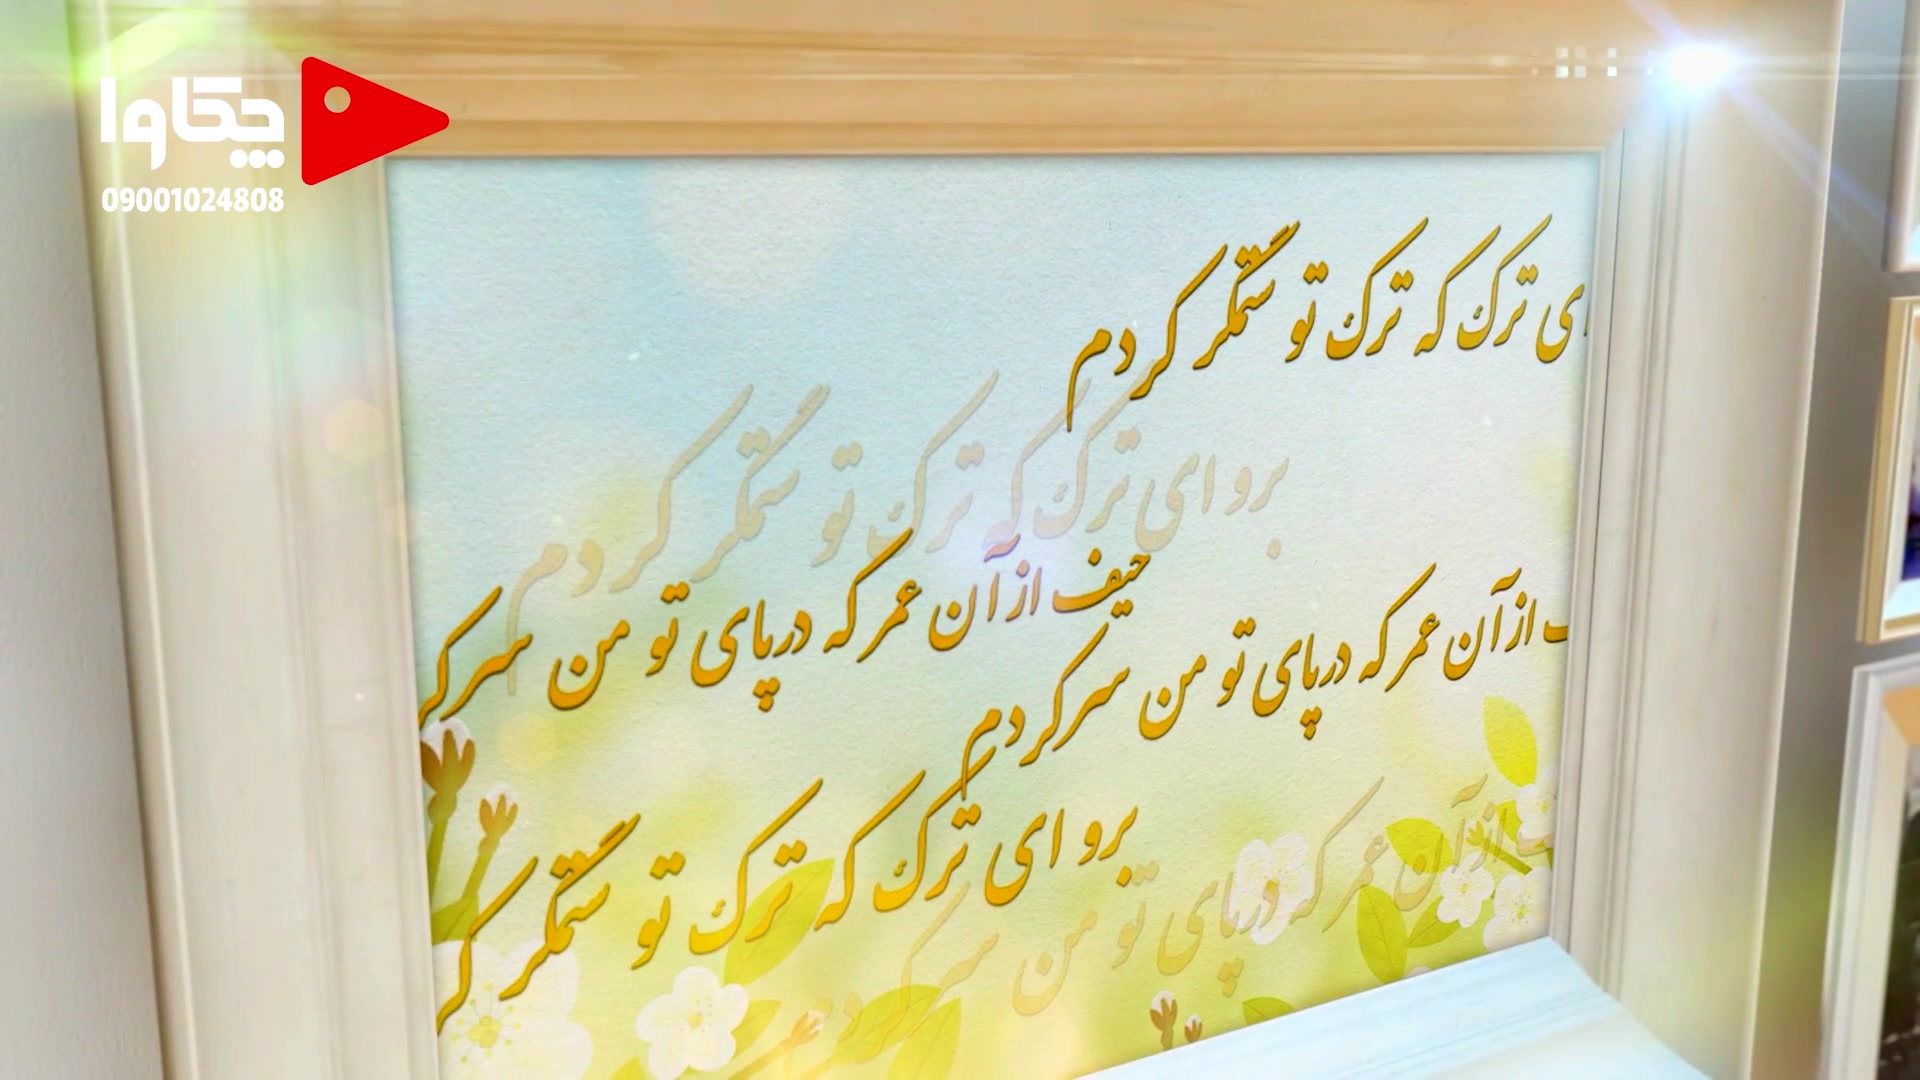 چکاوا
09001024808
ی ترک که ترک تو ستمگر کردم
برو ای ترک که ترک تو ستمگر کردم
حیف از آن عمر که در پای تو من سر کر
از آن عمر که در پای تو من سر کردم
برو ای ترک که ترک تو ستمگر کر
از آن عمر که در پای تو من سر کردم